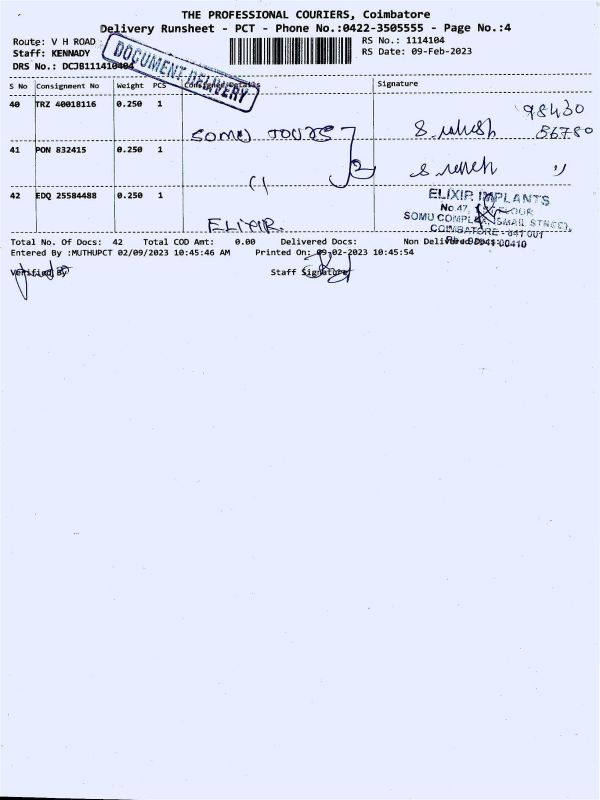 THE PROFESSIONAL COURIERS, Coimbatore
Delivery Runsheet - PCT - Phone No.:0422-3505555 - Page No.:4
Route: V H ROAD
RS No.: 1114104
Staff: KENNADY
RS Date: 09-Feb-2023
DRS No.: DCJB111410404
DOCUMENT DELIVERY
S No Consignment No Weight PCS Consignee Details Signature
40 TRZ 40018116 0.250 1
SOMU TOURS
98430
56780
41 PON 832415 0.250 1
2
42 EDQ 25584488 0.250 1
ELIXIR
ELIXIR IMPLANTS
No.47,
SOMU COMPLEX,
COIMBATORE - 641 001
Total No. Of Docs: 42 Total COD Amt: 0.00 Delivered Docs: Non Delivered Docs:
Entered By :MUTHUPCT 02/09/2023 10:45:46 AM Printed On: 09-02-2023 10:45:54
Verified By Staff Signature